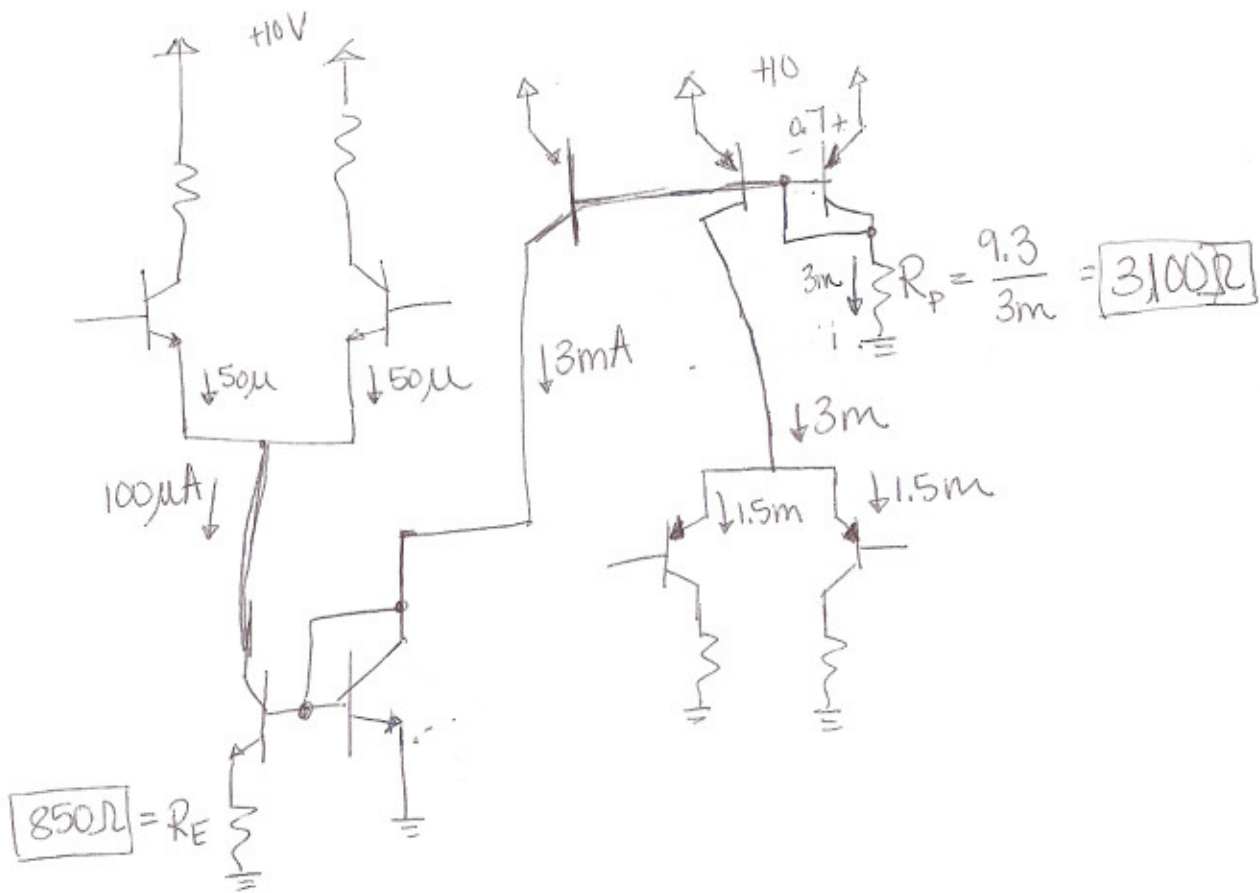 +10V
+10
0.7 +
-
3m R_P = 9.3 / 3m = 3,100Ω
i
50μ
50μ
3mA
3m
100μA
1.5m
1.5m
850Ω = R_E